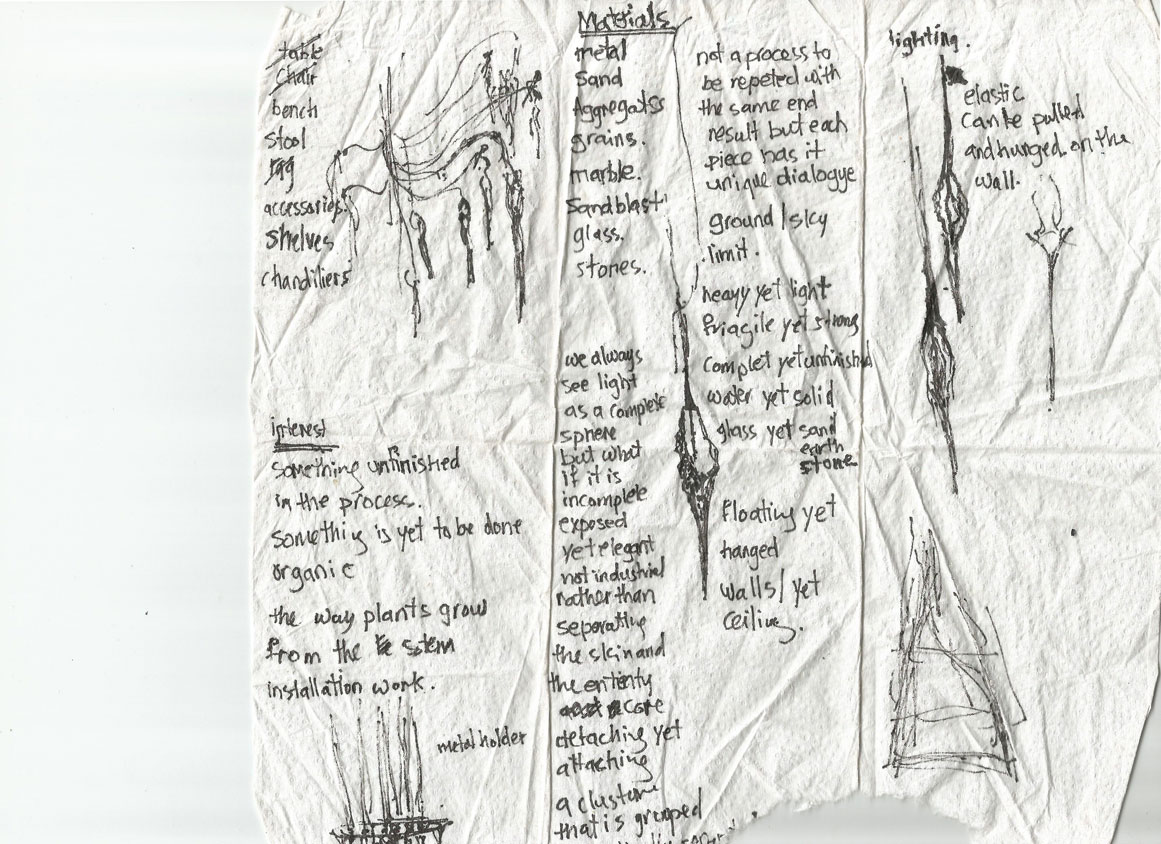 table
chair
bench
stool
rag
accessories.
shelves
chandiliers
interest
something unfinished
in the process.
somethig is yet to be done
organic
the way plants grow
from the stem
installation work.
metal holder
Materials
metal
Sand
Aggregates
grains.
marble.
Sandblast
glass.
stones.
we always
see light
as a complete
sphere
but what
if it is
incomplete
exposed
yet elegant
not industrial
rather than
seperating
the skin and
the entienty
core
detaching yet
attaching
a clusture
that is grouped
not a process to
be repeted with
the same end
result but each
piece has it
unique dialogye
ground / sky
limit.
heavy yet light
friagile yet strong
complet yet unfinished
water yet solid
glass yet sand
earth
stone
Floating yet
hanged
walls / yet
ceiling.
lighting.
elastic
can be pulled
and hunged on the
wall.